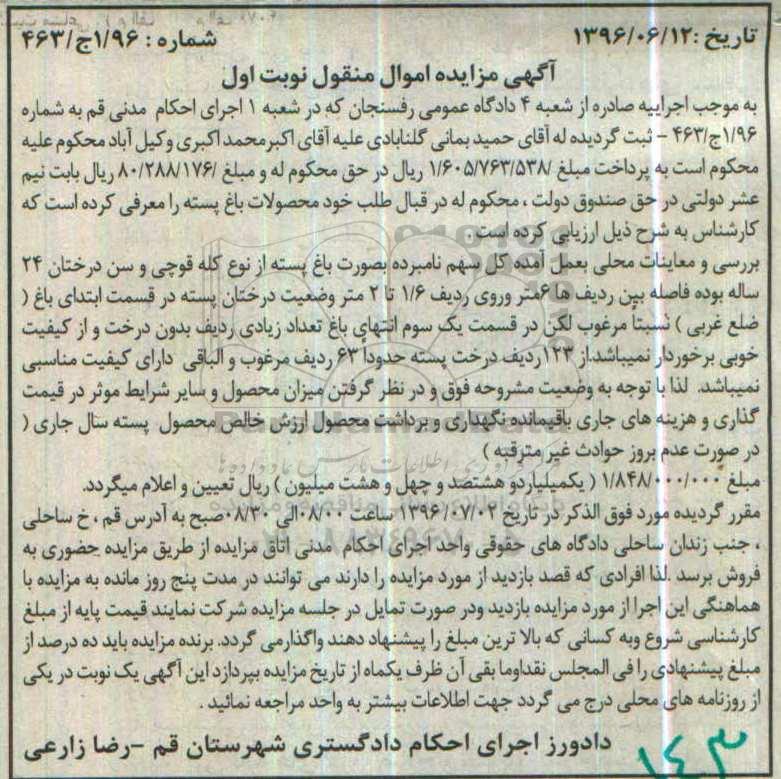 تاریخ :۱۳۹۶/۰۶/۱۲
شماره : ۱/۹۶ج/۴۶۳
آگهی مزایده اموال منقول نوبت اول
به موجب اجراییه صادره از شعبه ۴ دادگاه عمومی رفسنجان که در شعبه ۱ اجرای احکام مدنی قم به شماره
۱/۹۶ج/۴۶۳ – ثبت گردیده له آقای حمید یمانی گلنابادی علیه آقای اکبرمحمد اکبری وکیل آباد محکوم علیه
محکوم است به پرداخت مبلغ /۱/۶۰۵/۷۶۳/۵۳۸ ریال در حق محکوم له و مبلغ /۸۰/۲۸۸/۱۷۶ ریال بابت نیم
عشر دولتی در حق صندوق دولت ، محکوم له در قبال طلب خود محصولات باغ پسته را معرفی کرده است که
کارشناس به شرح ذیل ارزیابی کرده است
بررسی و معاینات محلی بعمل آمده کل سهم نامبرده بصورت باغ پسته از نوع کله قوچی و سن درختان ۲۴
ساله بوده فاصله بین ردیف ها ۶متر وروی ردیف ۱/۶ تا ۲ متر وضعیت درختان پسته در قسمت ابتدای باغ (
ضلع غربی ) نسبتاً مرغوب لکن در قسمت یک سوم انتهای باغ تعداد زیادی ردیف بدون درخت و از کیفیت
خوبی برخوردار نمیباشد.از ۱۲۳ردیف درخت پسته حدوداً ۶۳ ردیف مرغوب و الباقی دارای کیفیت مناسبی
نمیباشد. لذا با توجه به وضعیت مشروحه فوق و در نظر گرفتن میزان محصول و سایر شرایط موثر در قیمت
گذاری و هزینه های جاری باقیمانده نگهداری و برداشت محصول ارزش خالص محصول پسته سال جاری (
در صورت عدم بروز حوادث غیر مترقبه )
مبلغ ۱/۸۴۸/۰۰۰/۰۰۰ ( یکمیلیاردو هشتصد و چهل و هشت میلیون ) ریال تعیین و اعلام میگردد.
مقرر گردیده مورد فوق الذکر در تاریخ ۱۳۹۶/۰۷/۰۲ ساعت ۰۸/۰۰الی ۰۸/۳۰صبح به آدرس قم ، خ ساحلی
، جنب زندان ساحلی دادگاه های حقوقی واحد اجرای احکام مدنی اتاق مزایده از طریق مزایده حضوری به
فروش برسد .لذا افرادی که قصد بازدید از مورد مزایده را دارند می توانند در مدت پنج روز مانده به مزایده با
هماهنگی این اجرا از مورد مزایده بازدید ودر صورت تمایل در جلسه مزایده شرکت نمایند قیمت پایه از مبلغ
کارشناسی شروع وبه کسانی که بالا ترین مبلغ را پیشنهاد دهند واگذارمی گردد. برنده مزایده باید ده درصد از
مبلغ پیشنهادی را فی المجلس نقداوما بقی آن ظرف یکماه از تاریخ مزایده بپردازد این آگهی یک نوبت در یکی
از روزنامه های محلی درج می گردد جهت اطلاعات بیشتر به واحد مراجعه نمائید .
دادورز اجرای احکام دادگستری شهرستان قم –رضا زارعی
۱۴۳